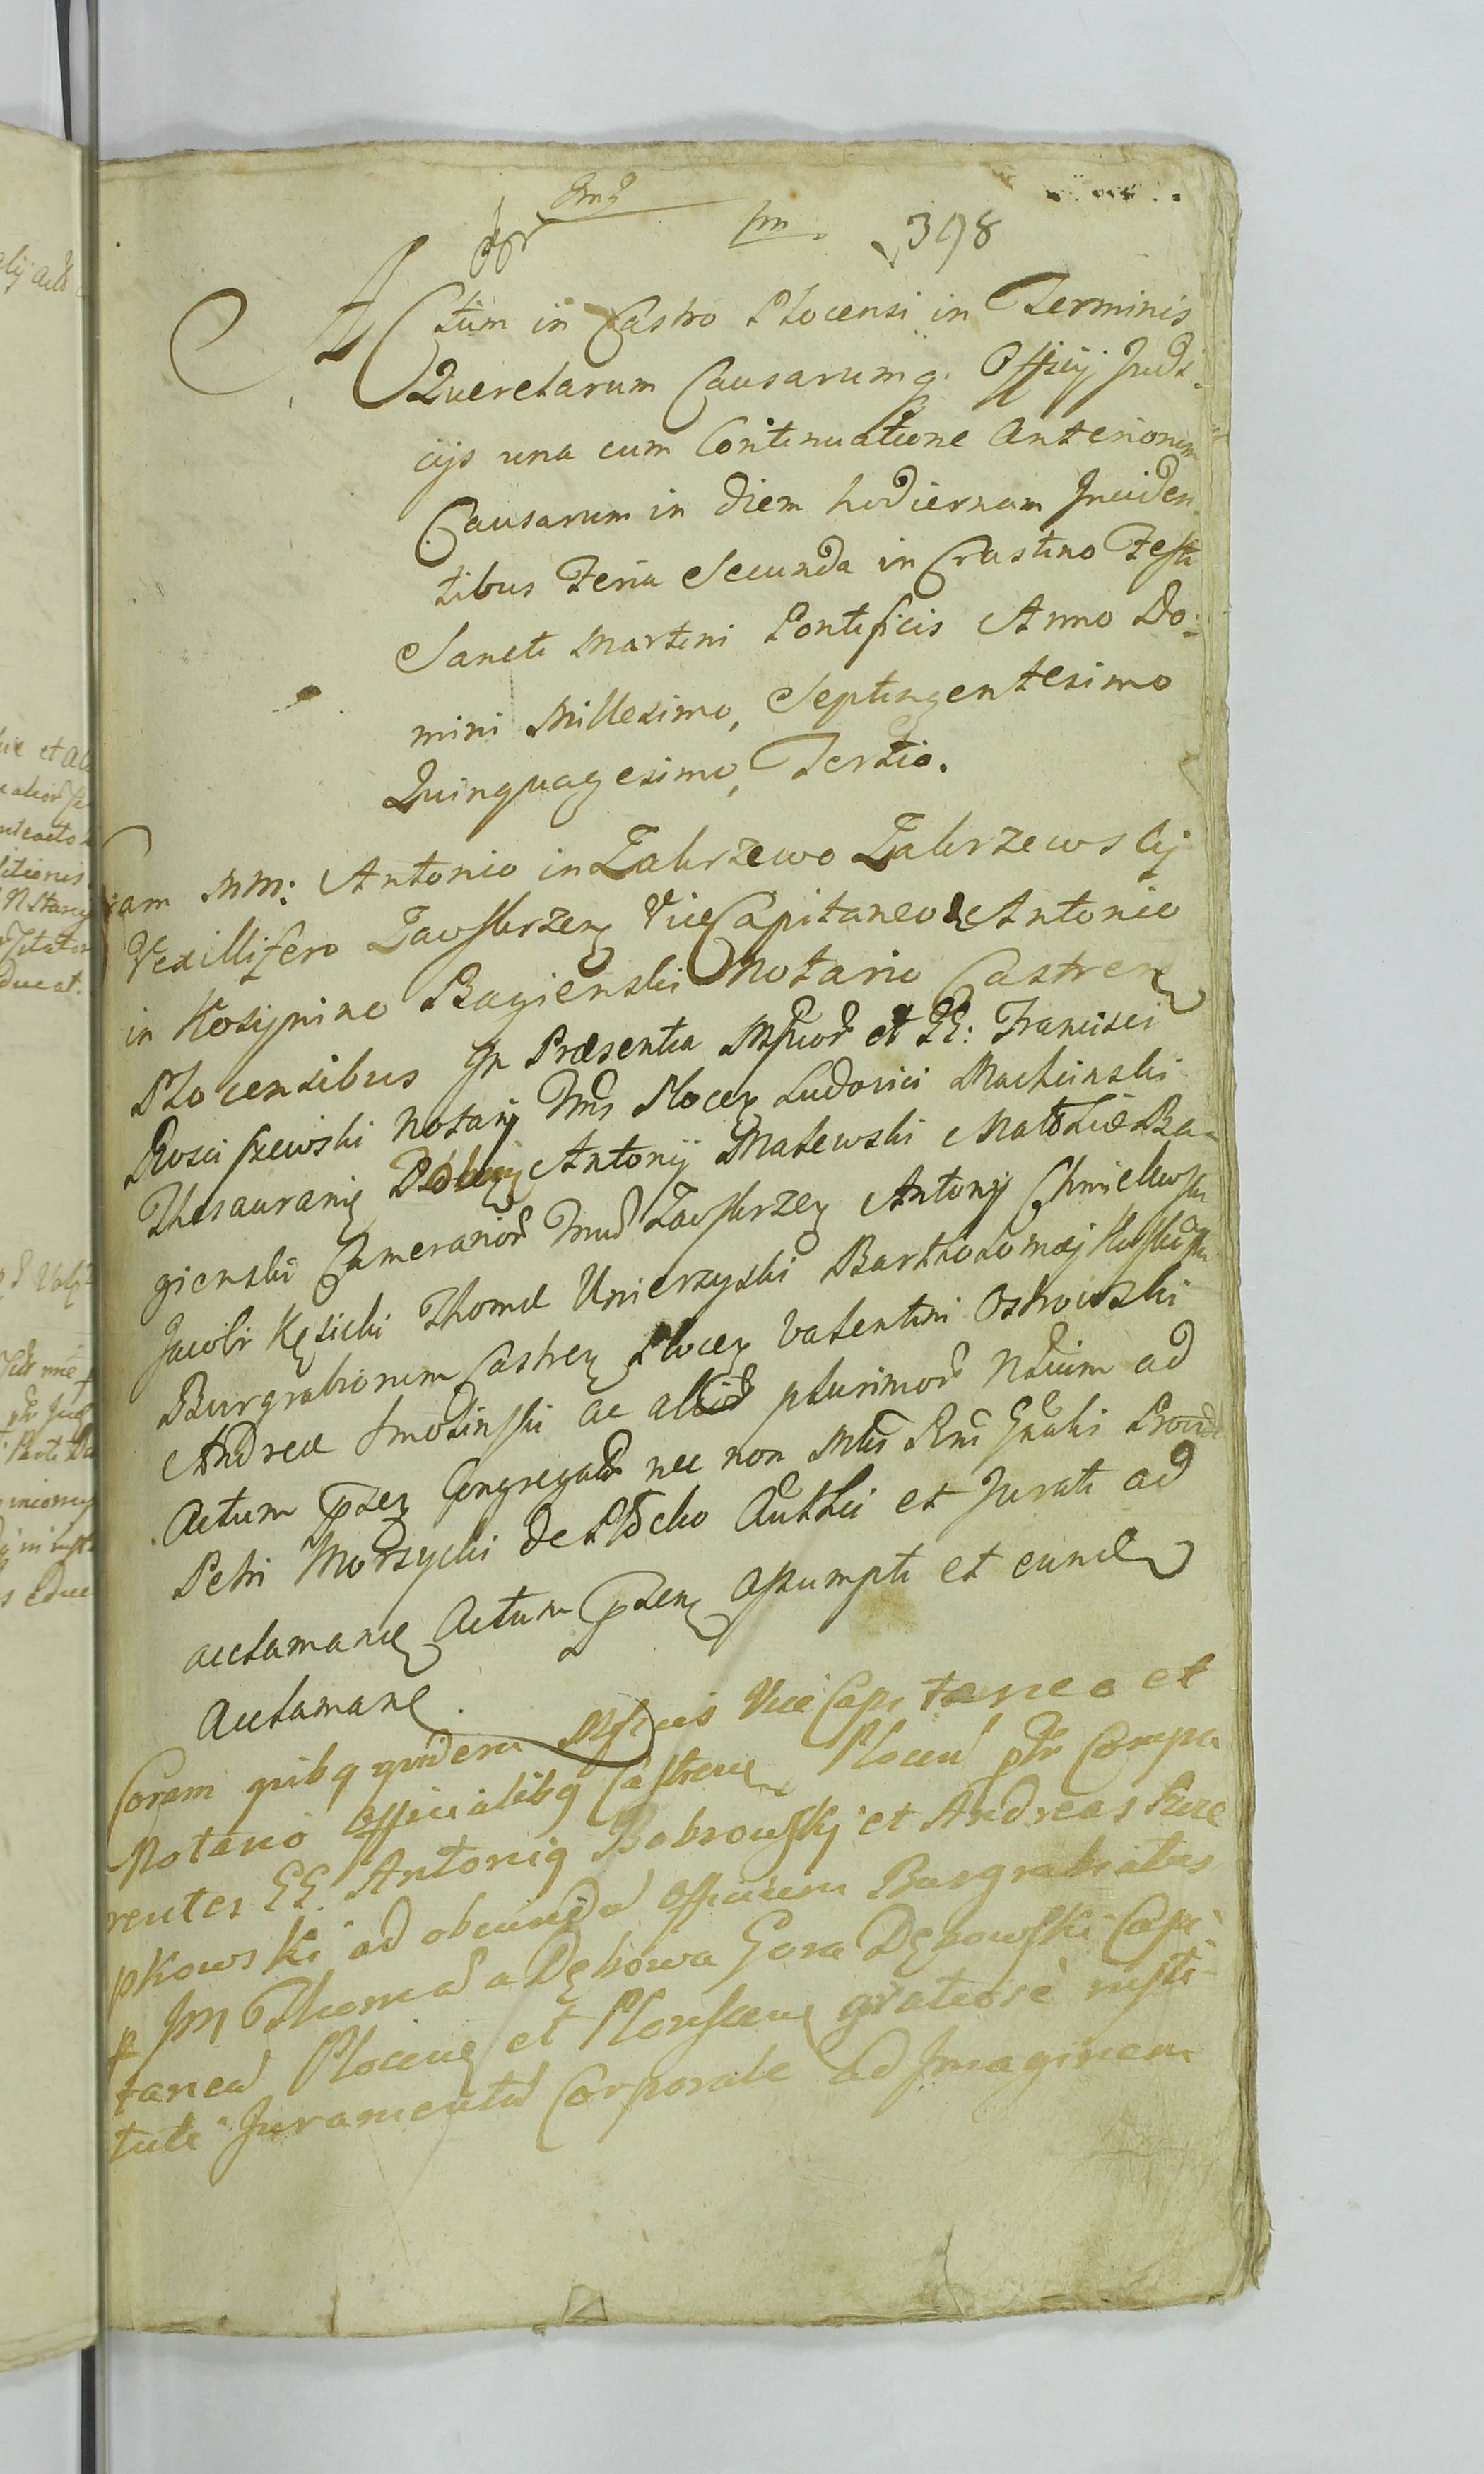 398
ACtum in Castro Plocensi in Terminis
Querelarum Causarumq. Officij Judi-
cijs una cum Continuatione Anteriorum
Causarum in diem hodiernam Inciden-
tibus Feria Secunda in Crastino Festi
Sancti Martini Pontificis Anno Do-
mini Millesimo, Septingentesimo
Quinquagesimo, Tertio.
MM: Antonio in Zakrzewo Zakrzewskij
Vexillifero Zawskrzen ViceCapitaneo & Antonio
in Koszynino Bagienski Notario Castren
Plocensibus In Præsentia Mfcor et GG: Francisci
Rosciszewski Notarij Trris Plocen Ludovici Machcinski
Thesaurarij Antonij Malewski Mathiæ Ba-
gienski Camerarior Zawskrzen Antonij Chmielewski
Jacobi Kęsicki Thomæ Unierzyski Bartholomæj
Burgrabiorum Castren Plocen Valentini Ostrowski
Andreæ Smolinski ac alior plurimor Nblium ad
Actum pzen Congregator nec non Mtris Pni Gnalis Providi
Petri Morzycki de Plocko Authci et Jurati ad
acclamand Actum pzen assumpti et eund
Acclamans.
Coram quibq quidem Mfcis ViceCapitaneo et
Notario Officialibq Castrens Plocen ptr Compa
rentes GG. Antoniq Bobrowskij et Andreas Krze
pkowski ad obeund Officium Burgrabiatus
p Im Thomam a Dębowa Gora Dębowski Capi-
taneum Plocens et Plonscens gratiosè insti-
tuti Juramentu Corporale ad Imaginem